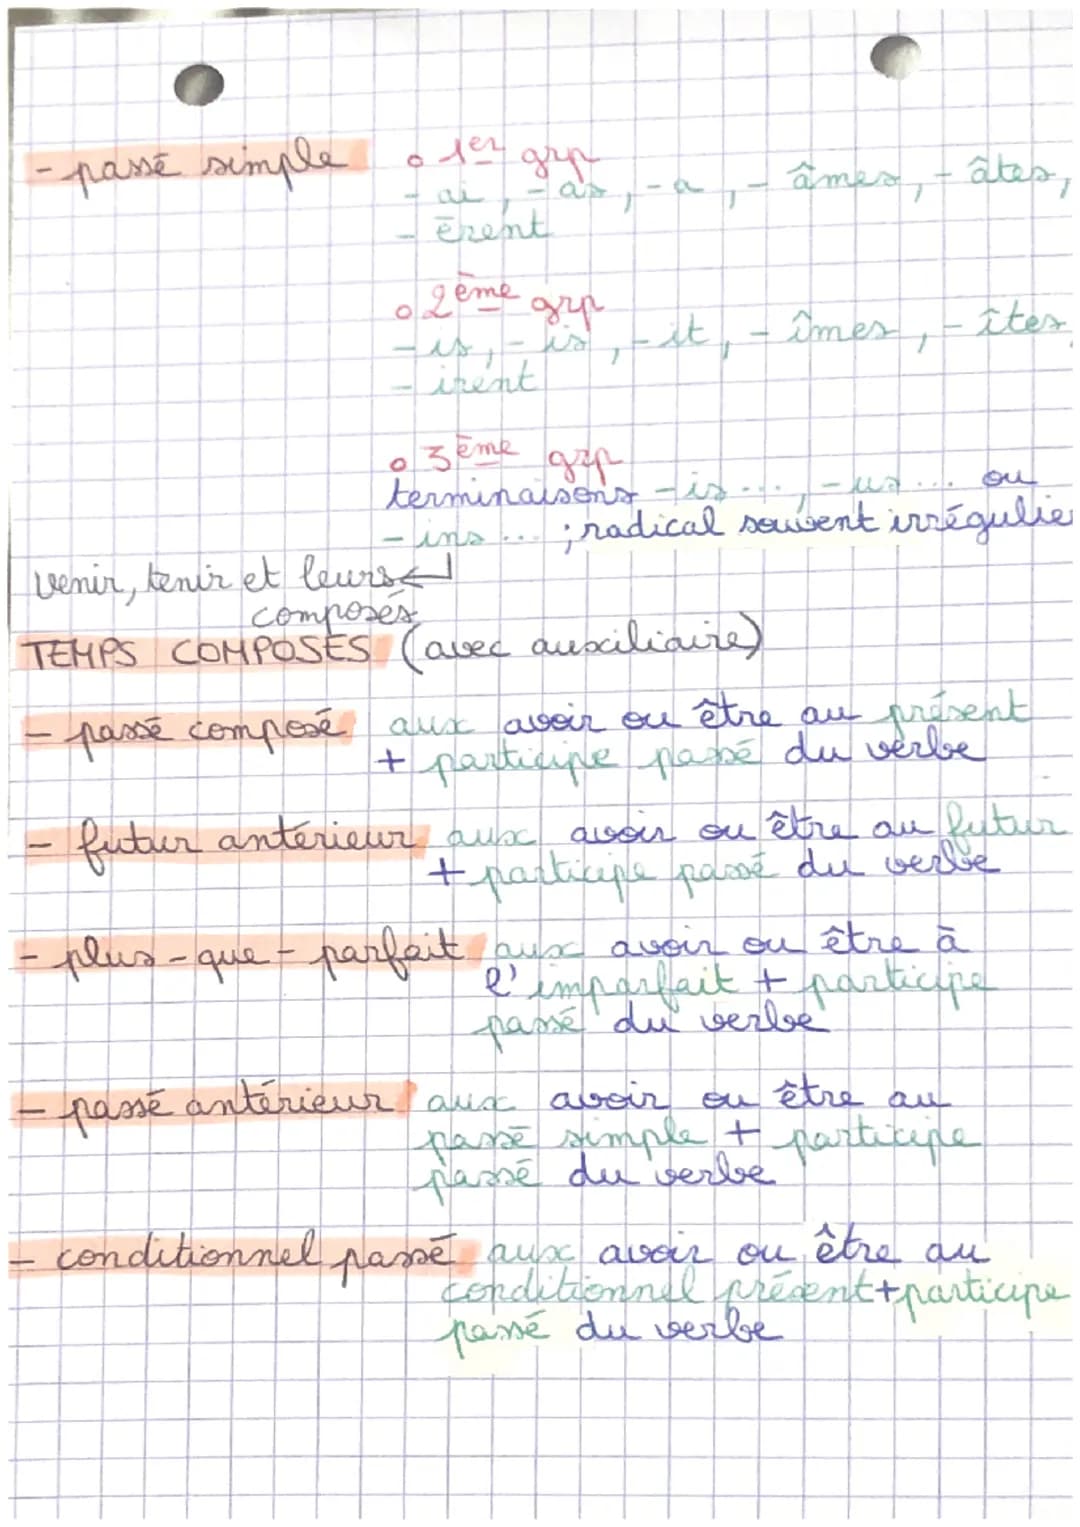 - passé simple ∘ 1er grp
- ai, - as, - a, - âmes, - âtes,
- èrent
∘ 2ème grp
- is, - is, - it, - îmes, - îtes
- irent
∘ 3ème grp
terminaisons - is ..., - us ... ou
- ins ... ; radical souvent irrégulie
venir, tenir et leurs ↵
composés
TEMPS COMPOSÉS (avec auxiliaire)
- passé composé aux avoir ou être au présent
+ participe passé du verbe
- futur antérieur aux avoir ou être au futur
+ participe passé du verbe
- plus-que-parfait aux avoir ou être à
l'imparfait + participe
passé du verbe
- passé antérieur aux avoir ou être au
passé simple + participe
passé du verbe
- conditionnel passé aux avoir ou être au
conditionnel présent + participe
passé du verbe